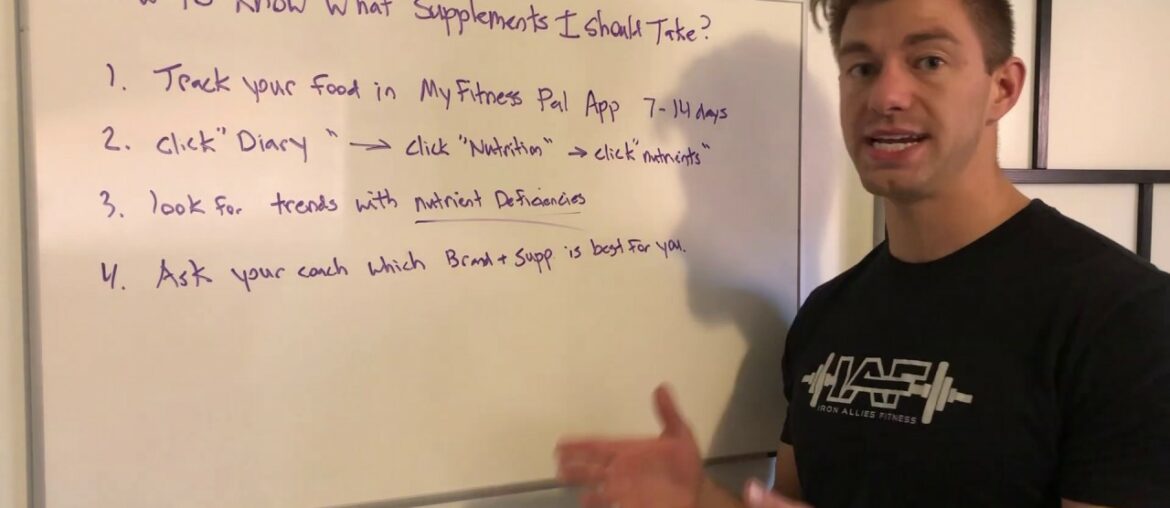 To Know What Supplements I Should Take?
1. Track your food in MyFitness Pal App 7-14 days
2. Click "Diary" → click "Nutrition" → click "nutrients"
3. look for trends with nutrient Deficiencies
4. Ask your coach which Brand + Supp is best for you.
IAF
IRON ALLIES FITNESS